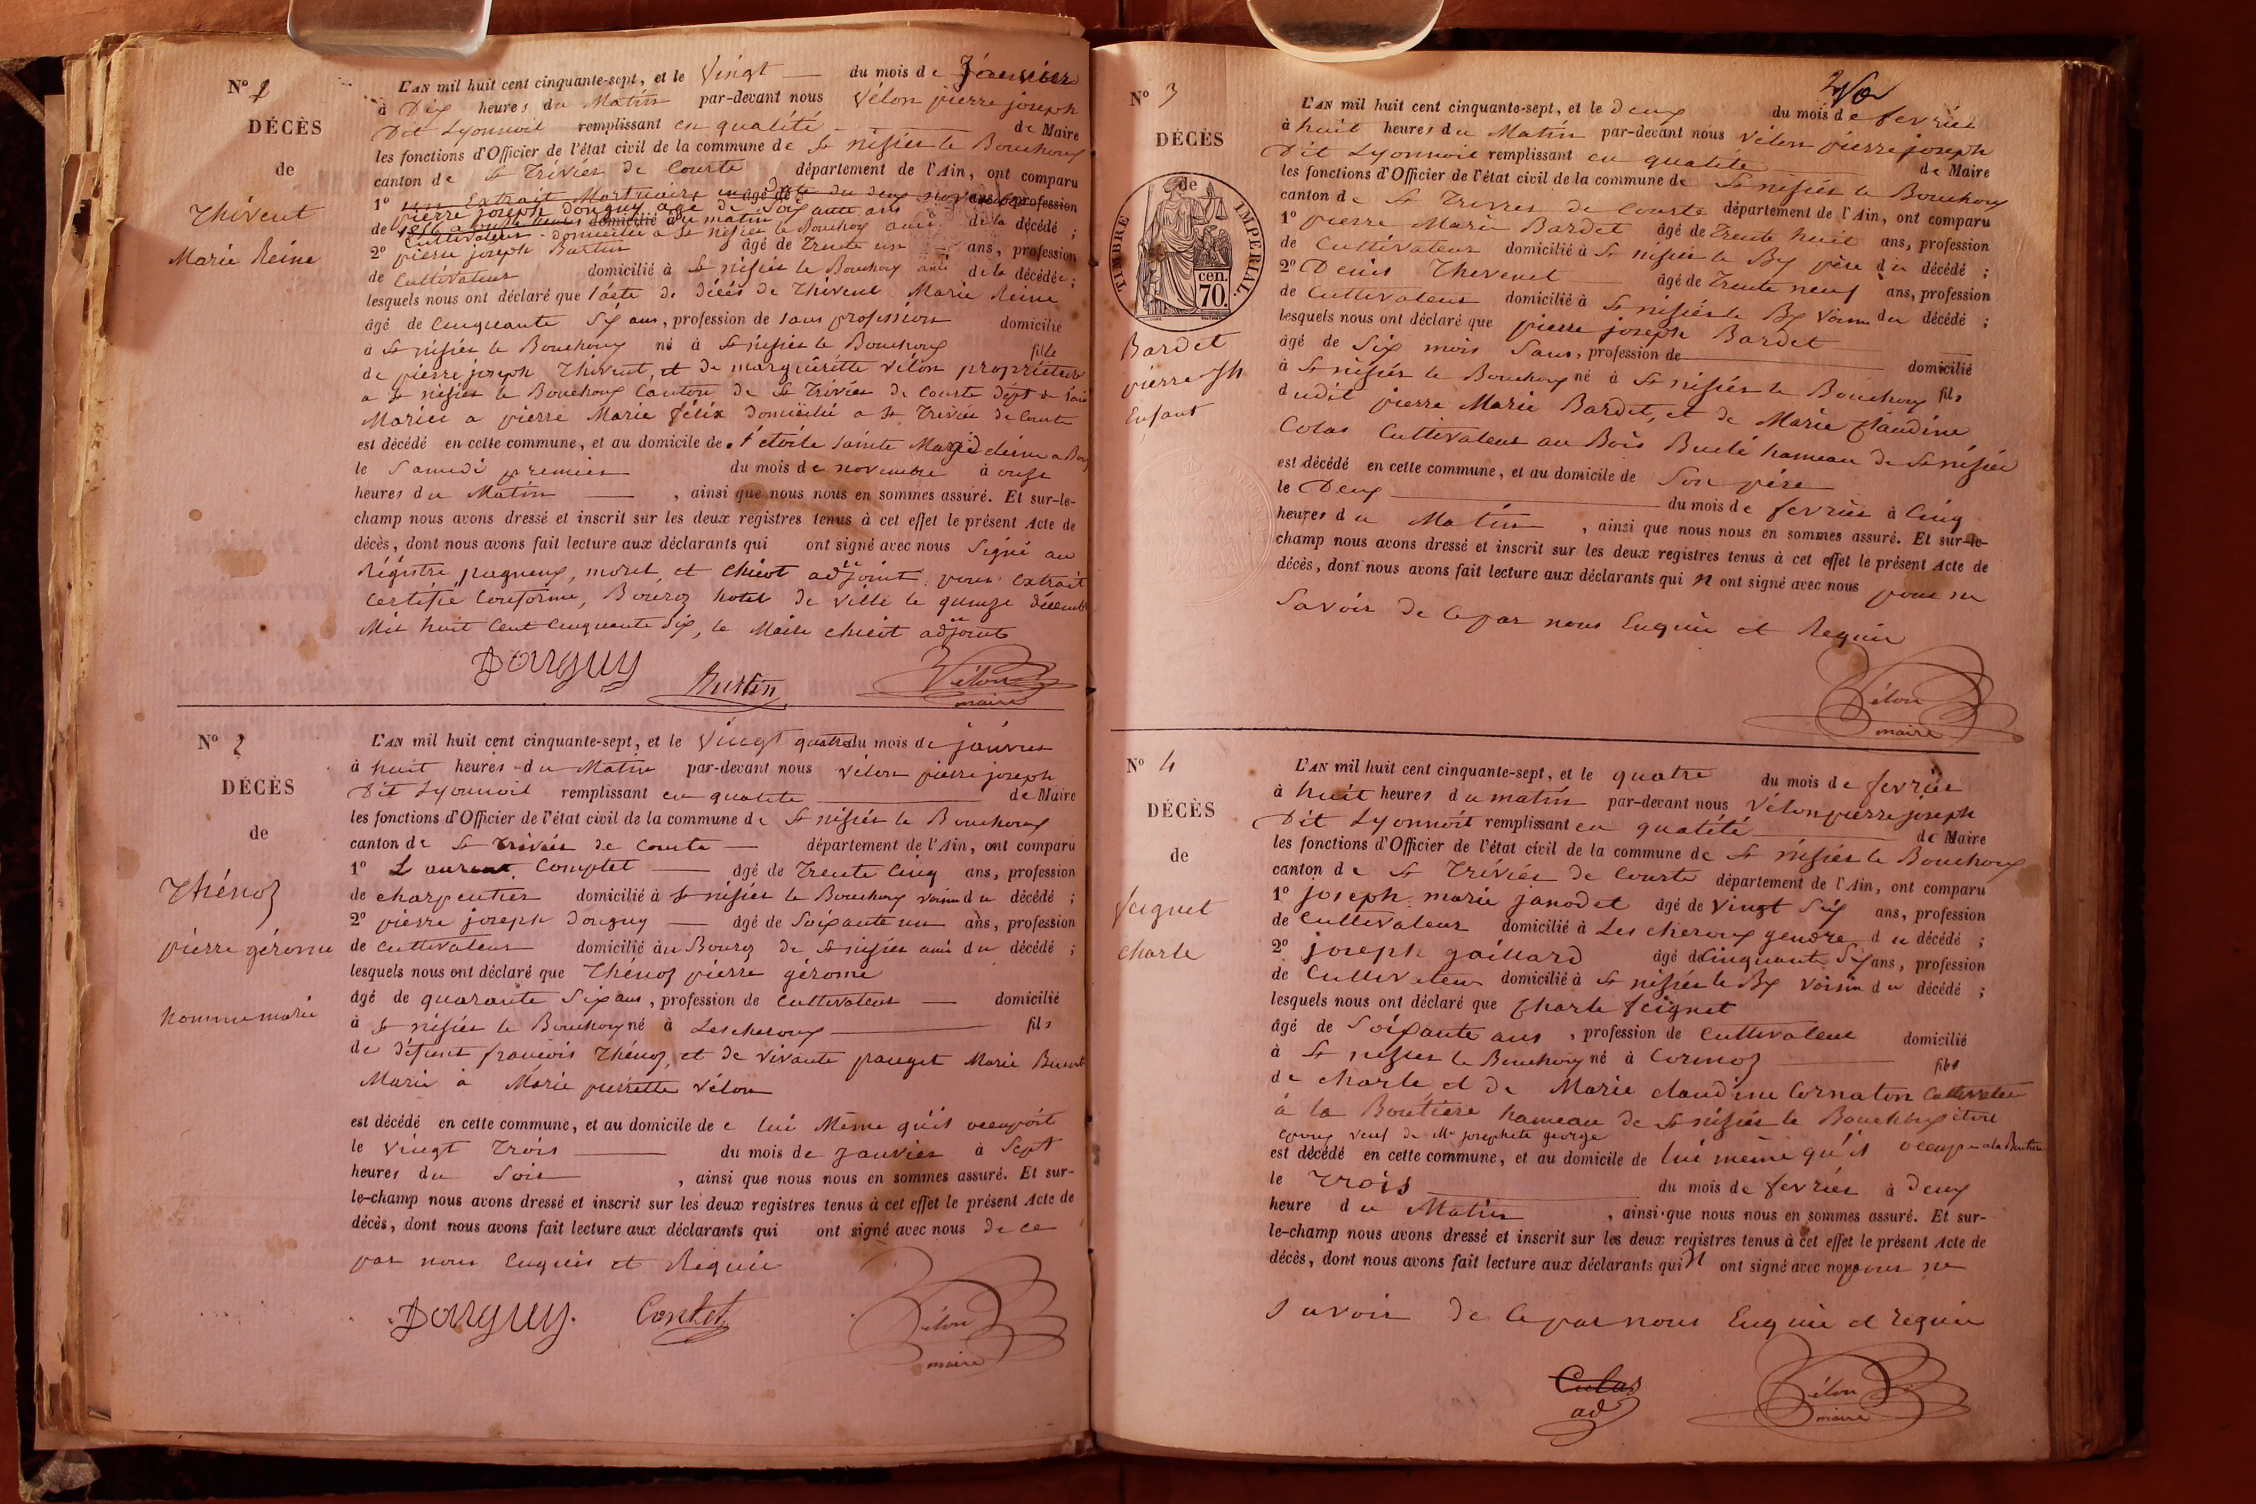 N° 1
DÉCÈS
de
Thivent
Marie Reine
L'AN mil huit cent cinquante-sept, et le Vingt du mois de Janvier
à Dix heures du Matin par-devant nous Vélon pierre joseph
Dit Lyonnoit remplissant en qualité de Maire
les fonctions d'Officier de l'état civil de la commune de St nisier le Bouchoux
canton de St Trivier de Courte département de l'Ain, ont comparu
1° un Extrait Mortuaire en date du deux âgé de ans, profession
pierre joseph donguy age de Soixante ans
de domicilié du matin de la décédé ;
Cultivateur domicilié a St nisier le Bouchoux ami
2° pierre joseph Bustin âgé de Trente un ans, profession
de Cultivateur domicilié à St nisier le Bouchoux ami de la décédée ;
lesquels nous ont déclaré que l'acte de décès de Thivent Marie Reine
âgé de Cinquante Six ans, profession de sans profession domicilié
à St nisier le Bouchoux né à St nisier le Bouchoux fille
de pierre joseph Thivent, et de marguéritte vélon propriétaire
a St nisier le Bouchoux Canton de St Trivier de Courte dépt de l'ain
Mariée a pierre Marie félix Domicilié a St Trivier de Courte
est décédé en cette commune, et au domicile de l'étoile Sainte Magdeleine a Bourg
le Samedi premier du mois de novembre à onze
heures du Matin , ainsi que nous nous en sommes assuré. Et sur-le-
champ nous avons dressé et inscrit sur les deux registres tenus à cet effet le présent Acte de
décès, dont nous avons fait lecture aux déclarants qui ont signé avec nous Signé au
Régistre pagneux, moret, et Chicot adjoint pour extrait
Certifié Conforme, Bourg hotel de ville le quinze décembre
Mil huit Cent Cinquante Six, le Maire chicot adjoint
Donguy Bustin Vélon
maire
N° 2
DÉCÈS
de
Thénoz
pierre gérome
homme marié
L'AN mil huit cent cinquante-sept, et le Vingt quatre du mois de janvier
à huit heures du Matin par-devant nous vélon pierre joseph
Dit Lyonnoit remplissant en qualité de Maire
les fonctions d'Officier de l'état civil de la commune de St nisier le Bouchoux
canton de St Trivier de Courte département de l'Ain, ont comparu
1° Laurent Comptet âgé de Trente Cinq ans, profession
de charpentier domicilié à St nisier le Bouchoux voisin du décédé ;
2° pierre joseph donguy âgé de Soixante un ans, profession
de Cultivateur domicilié au Bourg de St nisier ami du décédé ;
lesquels nous ont déclaré que Thénoz pierre gérome
âgé de quarante Six ans, profession de Cultivateur domicilié
à St nisier le Bouchoux né à Lescheroux fils
de défunt françois Thénoz, et de vivante pauget Marie
Marié à Marie pierrette vélon
est décédé en cette commune, et au domicile de lui Même qu'il occupoit
le Vingt Trois du mois de Janvier à Sept
heures du Soir , ainsi que nous nous en sommes assuré. Et sur-
le-champ nous avons dressé et inscrit sur les deux registres tenus à cet effet le présent Acte de
décès, dont nous avons fait lecture aux déclarants qui ont signé avec nous de ce
par nous Enquis et Réquis
Donguy. Contet Vélon
maire
N° 3
DÉCÈS
de
TIMBRE IMPÉRIAL.
70. cen
Bardet
pierre jh
Enfant
L'AN mil huit cent cinquante-sept, et le deux du mois de fevrier
à huit heures du Matin par-devant nous Vélon pierre joseph
Dit Lyonnoit remplissant en qualité de Maire
les fonctions d'Officier de l'état civil de la commune de St nisier le Bouchoux
canton de St Trivier de Courte département de l'Ain, ont comparu
1° pierre Marie Bardet âgé de Trente huit ans, profession
de Cultivateur domicilié à St nisier le Bx père du décédé ;
2° Denis Thevenet âgé de Trente neuf ans, profession
de Cultivateur domicilié à St nisier le Bx voisin du décédé ;
lesquels nous ont déclaré que pierre joseph Bardet
âgé de Six mois Sans, profession de domicilié
à St nisier le Bouchoux né à St nisier le Bouchoux fils
dudit pierre Marie Bardet, et de Marie Claudine
Colas Cultivateur au Bois Buclé hameau de St nisier
est décédé en cette commune, et au domicile de Son père
le Deux du mois de fevrier à Cinq
heures du Matin , ainsi que nous nous en sommes assuré. Et sur-le-
champ nous avons dressé et inscrit sur les deux registres tenus à cet effet le présent Acte de
décès, dont nous avons fait lecture aux déclarants qui n ont signé avec nous pour ne
Savoir de ce par nous Enquis et Requis
Vélon
maire
N° 4
DÉCÈS
de
feignet
Charle
L'AN mil huit cent cinquante-sept, et le quatre du mois de fevrier
à huit heures du matin par-devant nous Vélon pierre joseph
Dit Lyonnoit remplissant en qualité de Maire
les fonctions d'Officier de l'état civil de la commune de St nisier le Bouchoux
canton de St Trivier de Courte département de l'Ain, ont comparu
1° joseph marie janodet âgé de vingt Six ans, profession
de Cultivateur domicilié à Les cheroux gendre du décédé ;
2° joseph gaillard âgé de Cinquante Six ans, profession
de Cultivateur domicilié à St nisier le Bx voisin du décédé ;
lesquels nous ont déclaré que Charle feignet
âgé de Soixante ans , profession de Cultivateur domicilié
à St nisier le Bouchoux né à Cormoz fils
de charle et de Marie claudine Cornaton Cultivateur
à la Boutière hameau de St nisier le Bouchoux
Epoux veuf de Me josephete george
est décédé en cette commune, et au domicile de lui même qu'il occupe a la Boutière
le Trois du mois de fevrier à Deux
heure du Matin , ainsi que nous nous en sommes assuré. Et sur-
le-champ nous avons dressé et inscrit sur les deux registres tenus à cet effet le présent Acte de
décès, dont nous avons fait lecture aux déclarants qui n ont signé avec nous pour ne
Savoir de ce par nous Enquis et requis
Colas
ad Vélon
maire